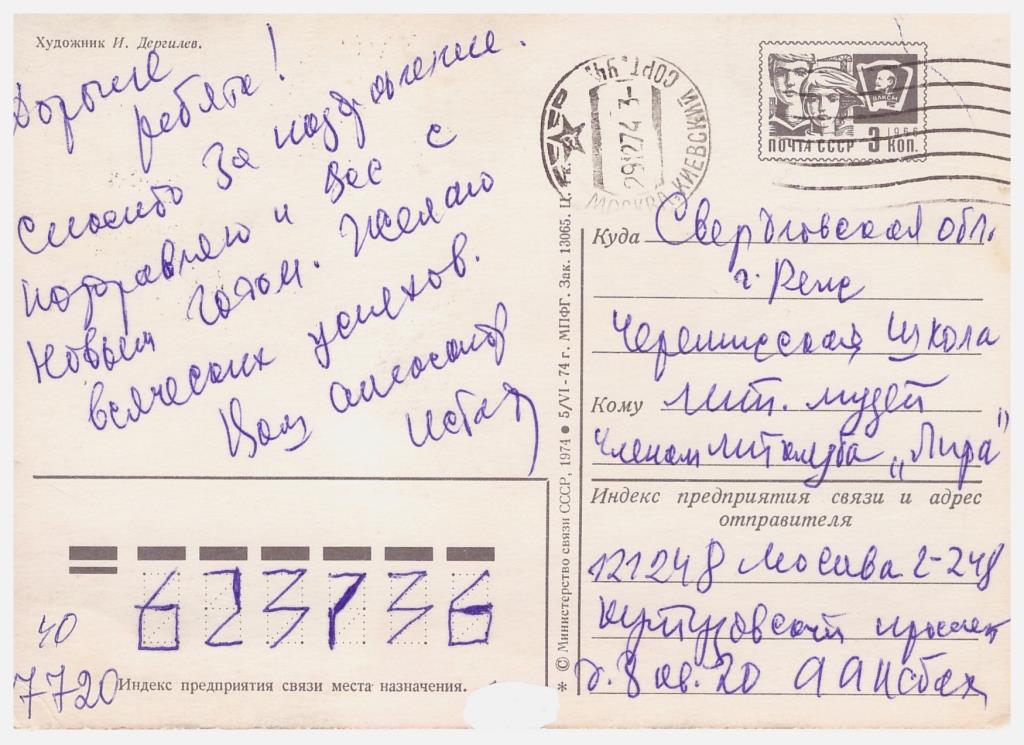 Художник И. Дергилев.
Дорогие
ребята!
Спасибо за поздравление.
Поздравляю и Вас с
Новым годом. Желаю
всяческих успехов.
Ваш Александр
ПОЧТА СССР 3 КОП.
1966
ВЛКСМ
МОСКВА-КИЕВСКИЙ СОРТ.
291274
СССР
Куда Свердловская обл.
г. Реж
Черемисская школа
Кому лит. музей
Членам литклуба „Лира"
Индекс предприятия связи и адрес
отправителя
121248 Москва Г-248
Кутузовский проспект
д. 8 кв. 20 А А Исбах
© Министерство связи СССР, 1974 ● 5/VI-74 г. МПФГ. Зак. 13065. Ц.
40
7720
Индекс предприятия связи места назначения.